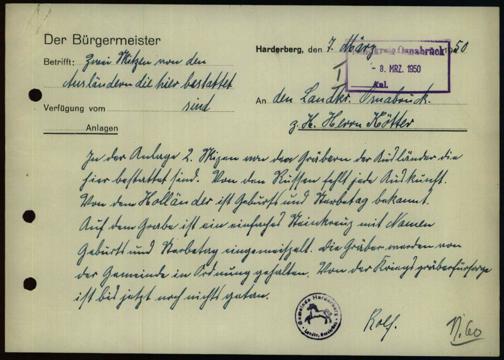 Der Bürgermeister
Harderberg, den 7. März 1950
Landkreis Osnabrück
- 8. MRZ. 1950
Anl.
Betrifft: Zwei Skizzen von den
Ausländern die hier bestattet
sind
Verfügung vom
Anlagen
An den Landkr. Osnabrück.
z. H. Herrn Kötter
In der Anlage 2. Skizzen von den Gräbern der Ausländer die
hier bestattet sind. Von den Russen fehlt jede Auskunft.
Von dem Holländer ist Geburts und Sterbetag bekannt.
Auf dem Grabe ist ein einfaches Steinkreuz mit Namen
Geburts und Sterbetag eingemeißelt. Die Gräber werden von
der Gemeinde in Ordnung gehalten. Von der Kriegsgräberfürsorge
ist bis jetzt noch nichts getan.
Gemeinde Harderberg
Landkr. Osnabrück
Rolf.